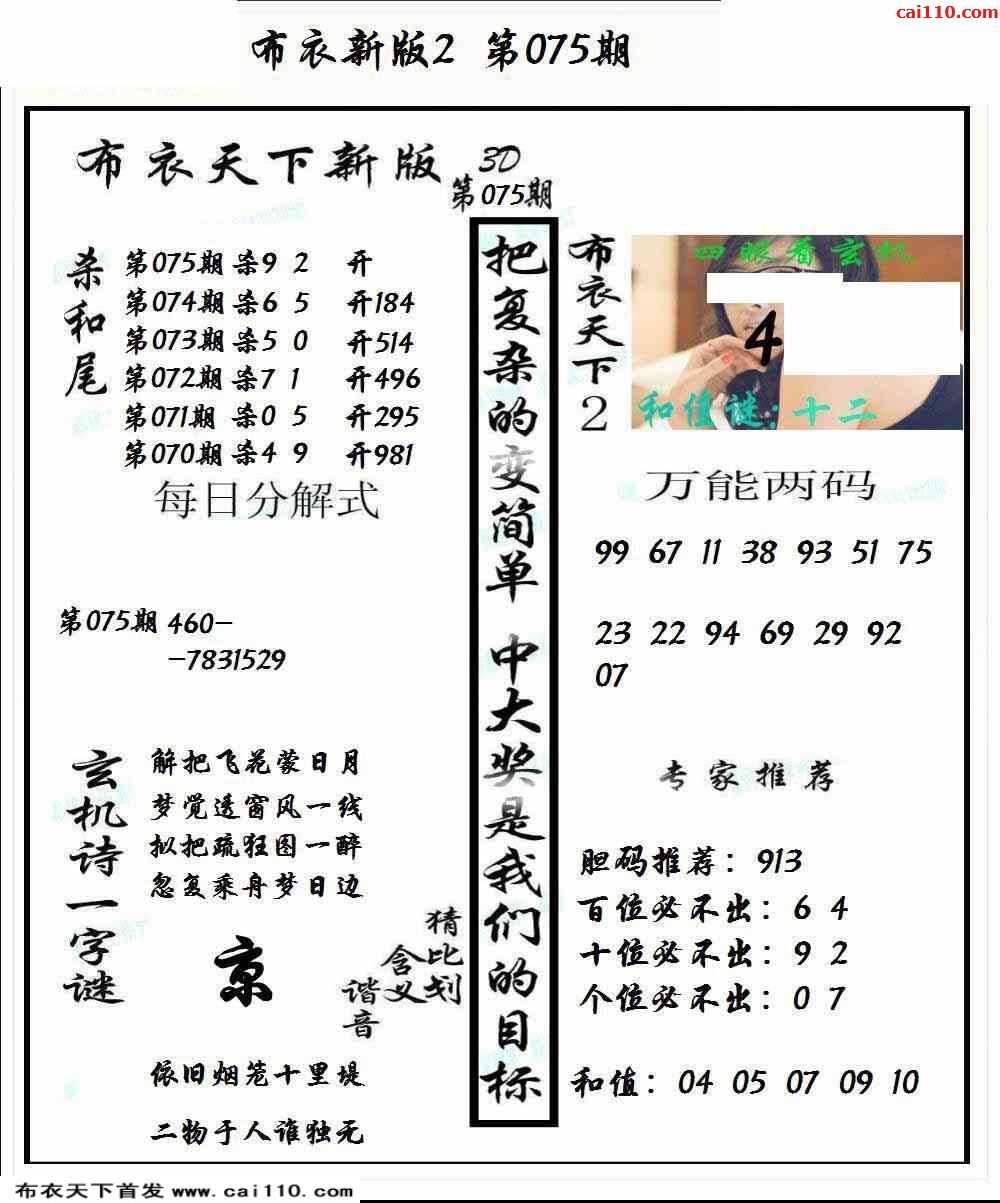 cai110.com
布衣新版2 第075期
布衣天下新版
3D
第075期
杀和尾
第075期 杀9 2 开
第074期 杀6 5 开184
第073期 杀5 0 开514
第072期 杀7 1 开496
第071期 杀0 5 开295
第070期 杀4 9 开981
每日分解式
第075期 460-
-7831529
玄机诗一字谜
解把飞花蒙日月
梦觉透窗风一线
拟把疏狂图一醉
忽复乘舟梦日边
京
猜比划
含义
谐音
依旧烟笼十里堤
二物于人谁独无
把复杂的变简单 中大奖是我们的目标
布衣天下2
四眼看玄机
4
和值谜:十二
万能两码
99 67 11 38 93 51 75
23 22 94 69 29 92
07
专家推荐
胆码推荐：913
百位必不出：6 4
十位必不出：9 2
个位必不出：0 7
和值：04 05 07 09 10
布衣天下首发 www.cai110.com